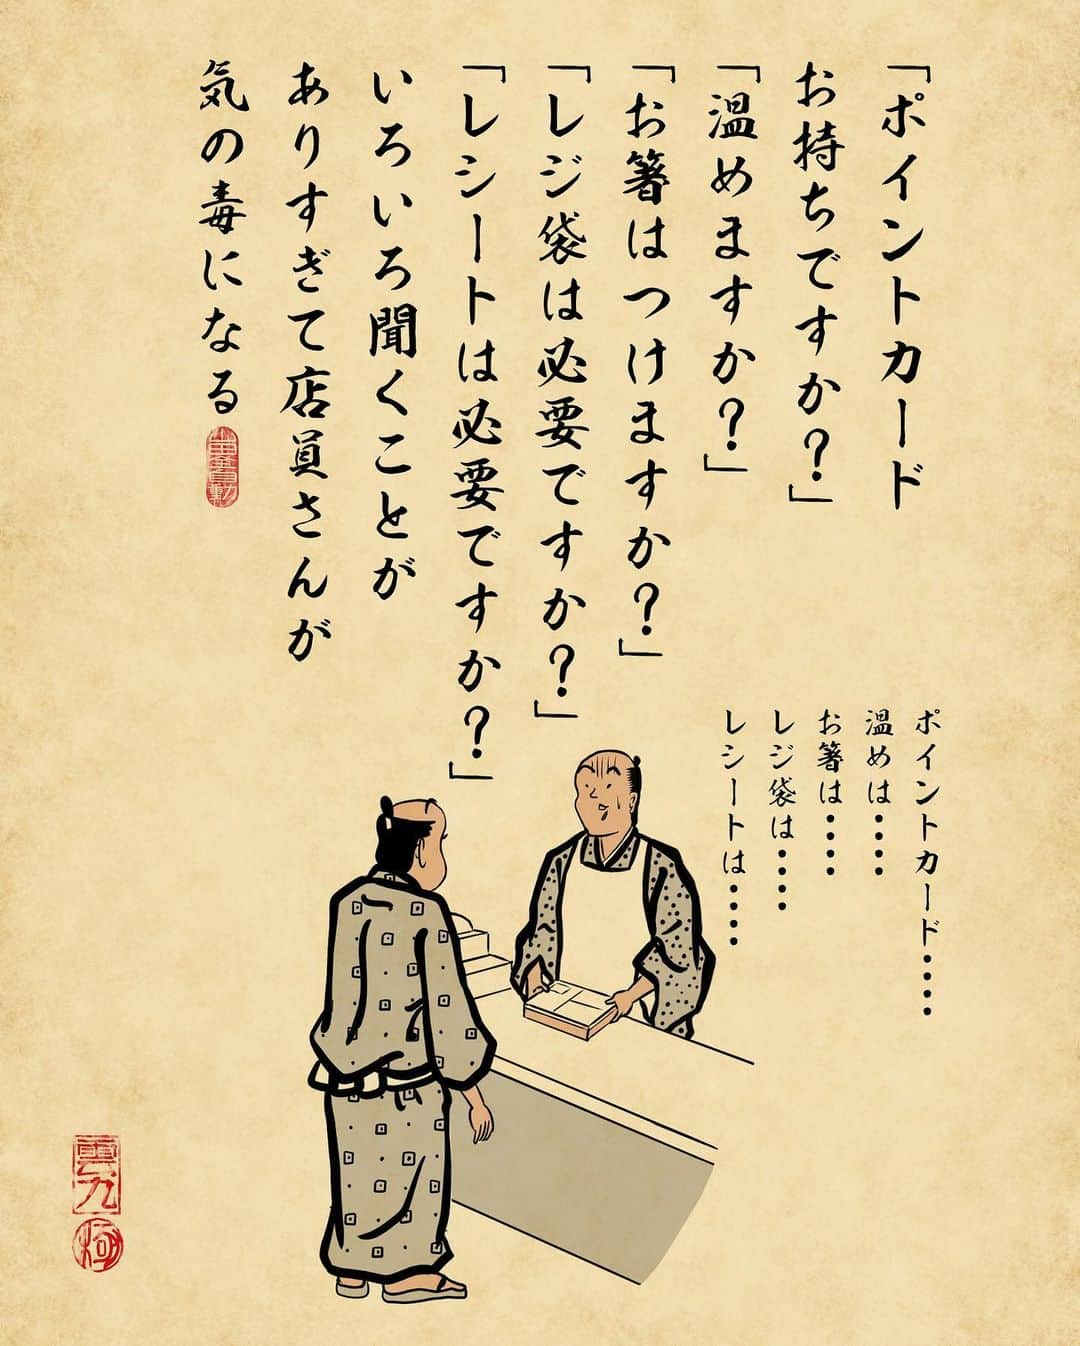 「ポイントカード
お持ちですか？」
「温めますか？」
「お箸はつけますか？」
「レジ袋は必要ですか？」
「レシートは必要ですか？」
いろいろ聞くことが
ありすぎて店員さんが
気の毒になる
ポイントカード・・・・
温めは・・・・
お箸は・・・・
レジ袋は・・・・
レシートは・・・・